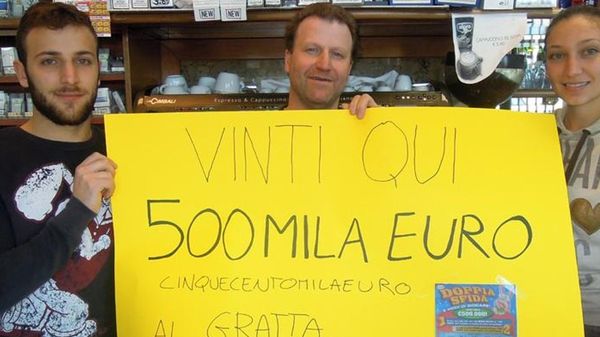 NEW
NEW
CAPPUCCINO
CIMBALI
Espresso & Cappuccino
VINTI QUI
500MILA EURO
CINQUECENTOMILAEURO
AL GRATTA
DOPPIA
SFIDA
€500.000!
1
2